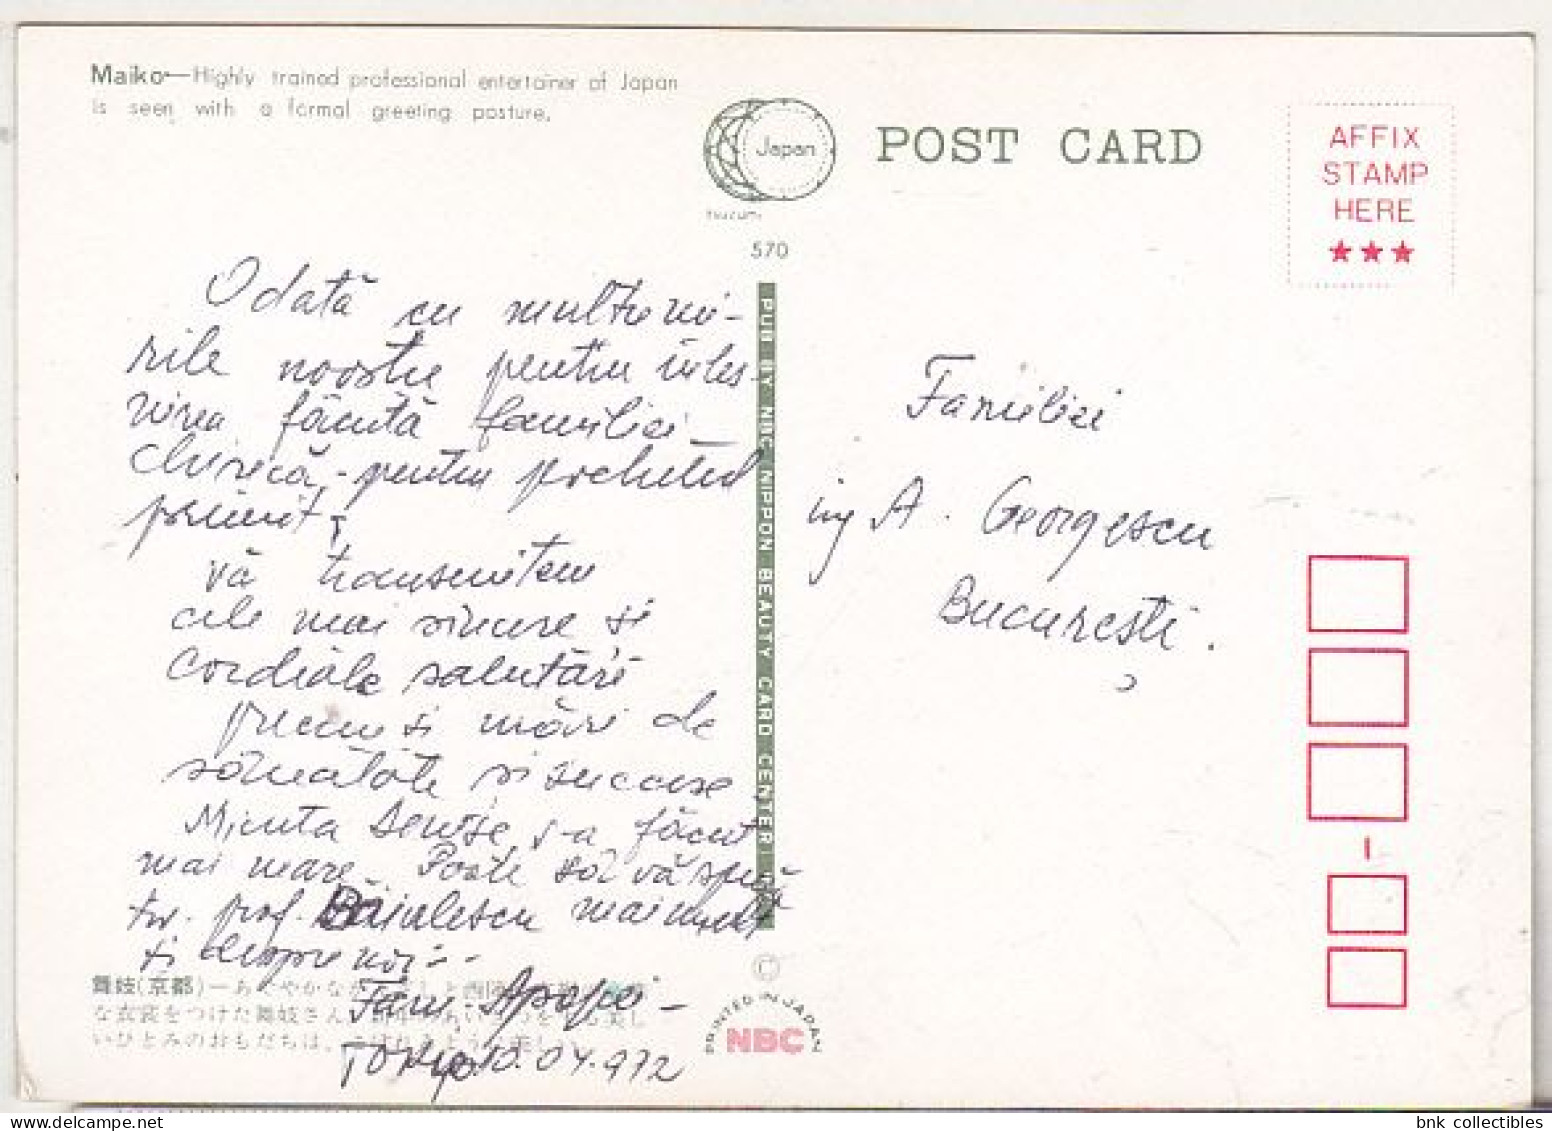 Maiko—Highly trained professional entertainer of Japan
is seen with a formal greeting posture.
Japan
tsuzumi
POST CARD
AFFIX
STAMP
HERE
★★★
570
Odată cu mulțumi-
rile noastre pentru inles-
nirea făcută familiei
Chirică, pentru pachetul
primit,
vă transmitem
cele mai sincere și
cordiale salutări
precum și urări de
sănătate și succese
Micuta Denise s-a făcut
mai mare. Poate să vă spună
tov. prof. Băiulescu mai mult
și despre noi --
Fam. Apopei -
Tokyo 10.04.972
Familiei
ing A. Georgescu
București.
PUB BY NBC NIPPON BEAUTY CARD CENTER
舞妓(京都)—あでやかな
な衣裳をつけた舞妓さん
いひとみのおもだちは、
©
PRINTED IN JAPAN
NBC
bnk collectibles